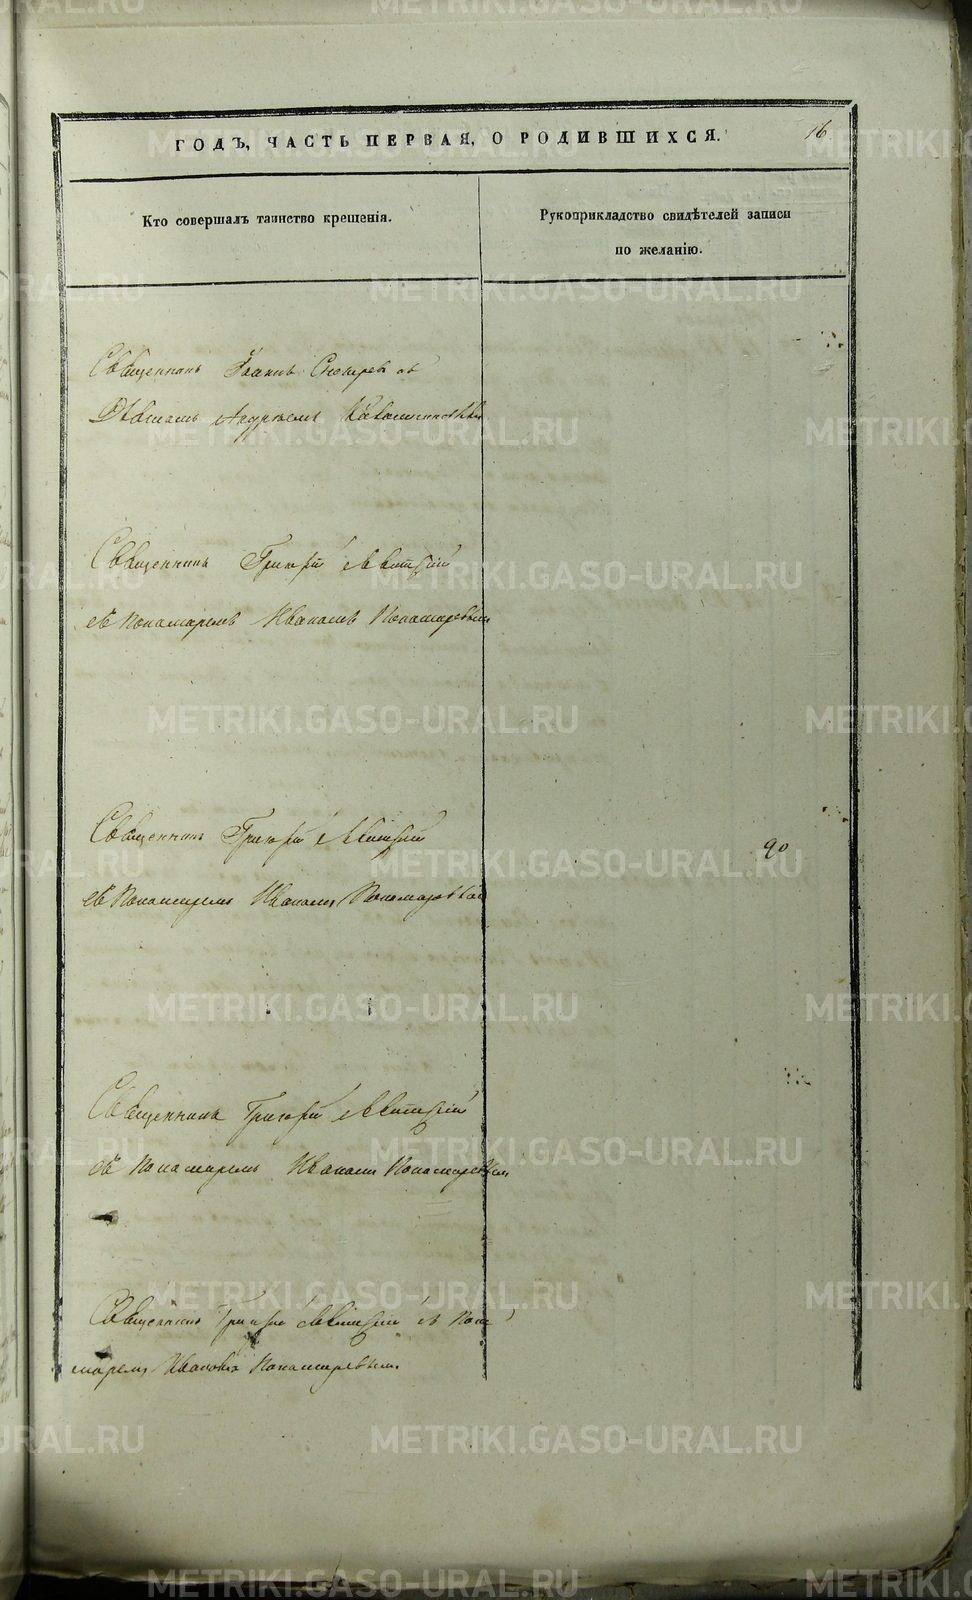 ГОДЪ, ЧАСТЬ ПЕРВАЯ, О РОДИВШИХСЯ.
16
Кто совершалъ таинство крещенія.
Рукоприкладство свидѣтелей записи
по желанію.
Священникъ Іоаннъ съ
Андреемъ
Священникъ Григорій Левитскій
съ Пономаремъ Иваномъ Пономаревымъ
Священникъ Григорій Левитскій
90
съ Пономаремъ Иваномъ Пономаревымъ
Священникъ Григорій Левитскій
съ Пономаремъ Иваномъ Пономаревымъ
Священникъ Григорій Левитскій съ Поно
маремъ Иваномъ Пономаревымъ
METRIKI.GASO-URAL.RU